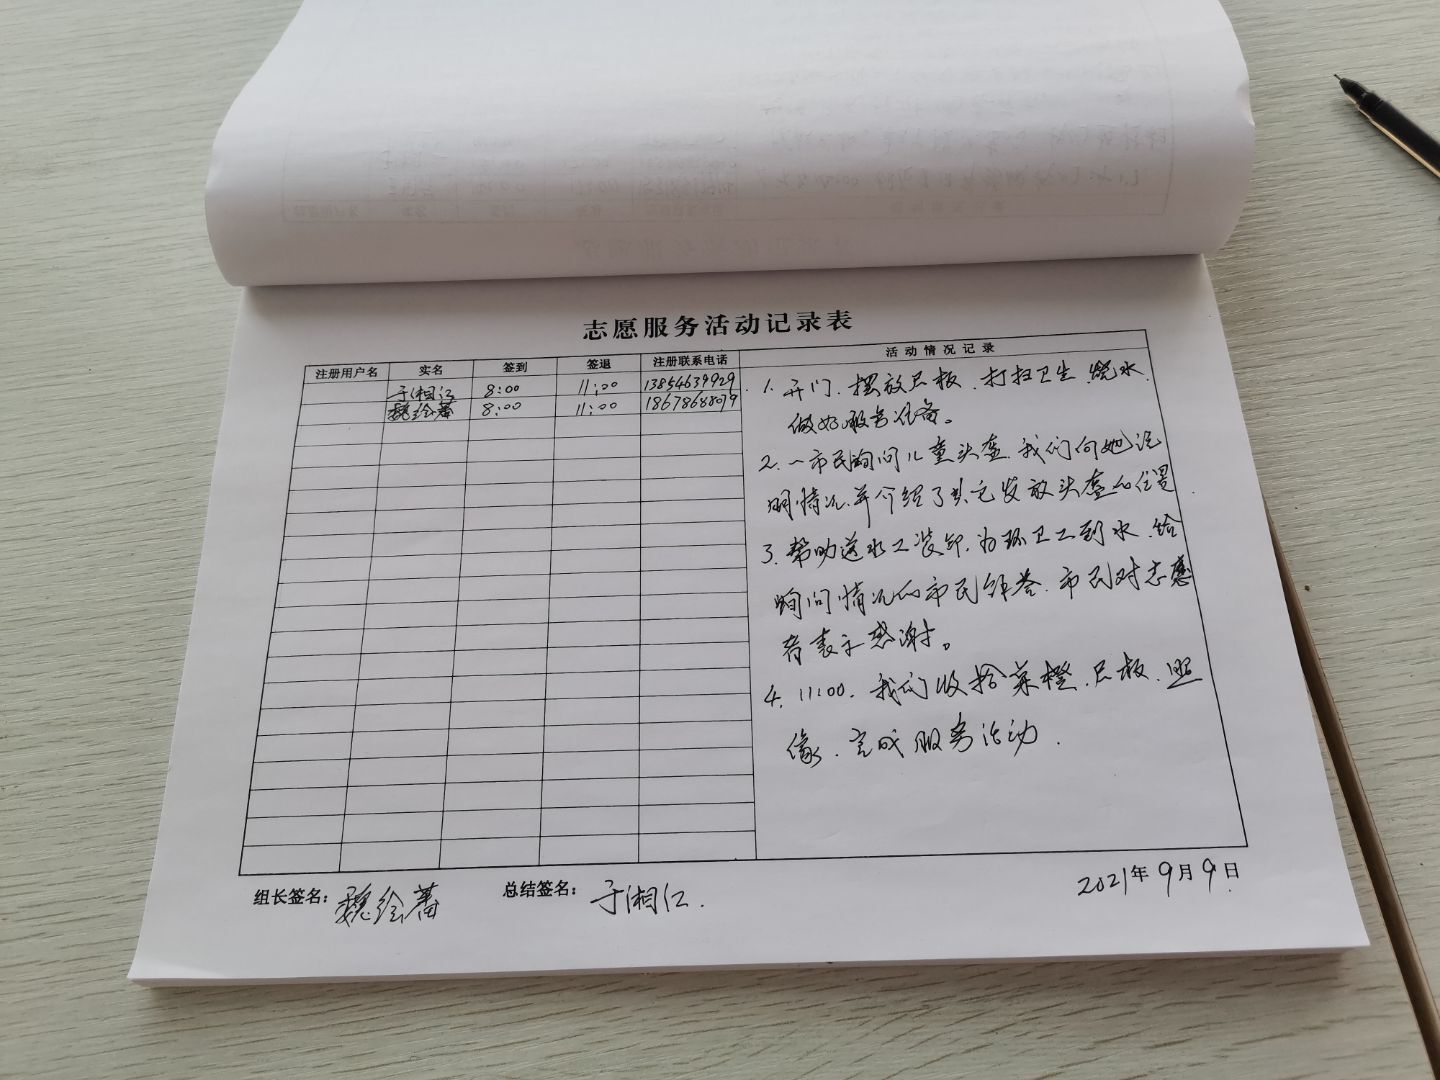 志愿服务活动记录表
注册用户名 实名 签到 签退 注册联系电话 活动情况记录
于湘江 8:00 11:00 13854639929
魏绘蕃 8:00 11:00 18678688079
1. 开门、摆放展板、打扫卫生、烧水、
做好服务准备。
2. 一市民询问儿童头盔、我们向她说
明情况、并介绍了其它发放头盔的位置
3. 帮助送水工装卸、为环卫工到水、给
询问情况的市民解答、市民对志愿
者表示感谢。
4. 11:00、我们收拾菜橙、展板、照
像、完成服务活动.
组长签名：魏绘蕃 总结签名：于湘江.
2021年9月9日